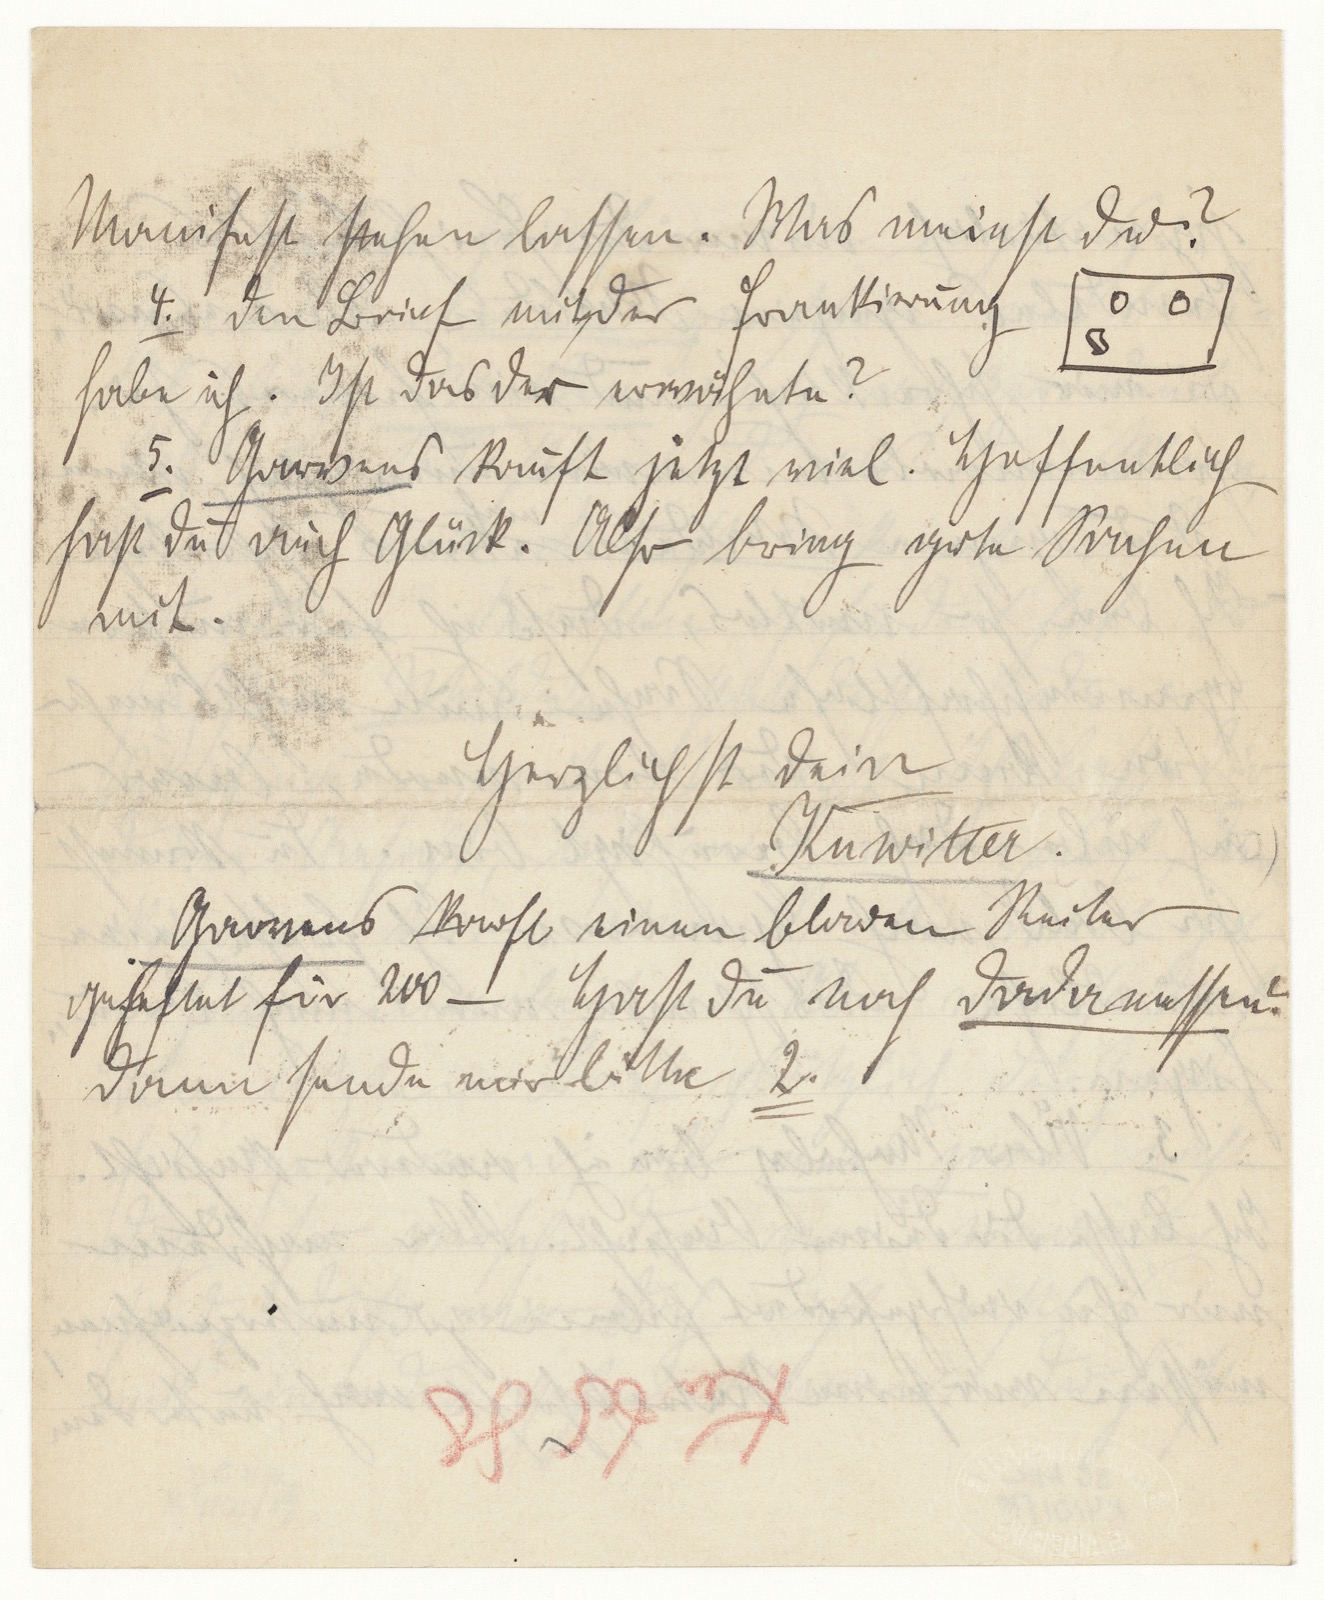 Manifest stehen lassen. Was meinst du?
4. den Brief mit der Frankierung
habe ich. Ist das der erwähnte?
5. Garvens kauft jetzt viel. Hoffentlich
hast du auch Glück. Also bring gute Sachen
mit.
Herzlichst dein
Kuwitter.
Garvens kauft einen blauen Reiter
geheftet für 200 — Hast du noch
dann sende mir bitte 2.